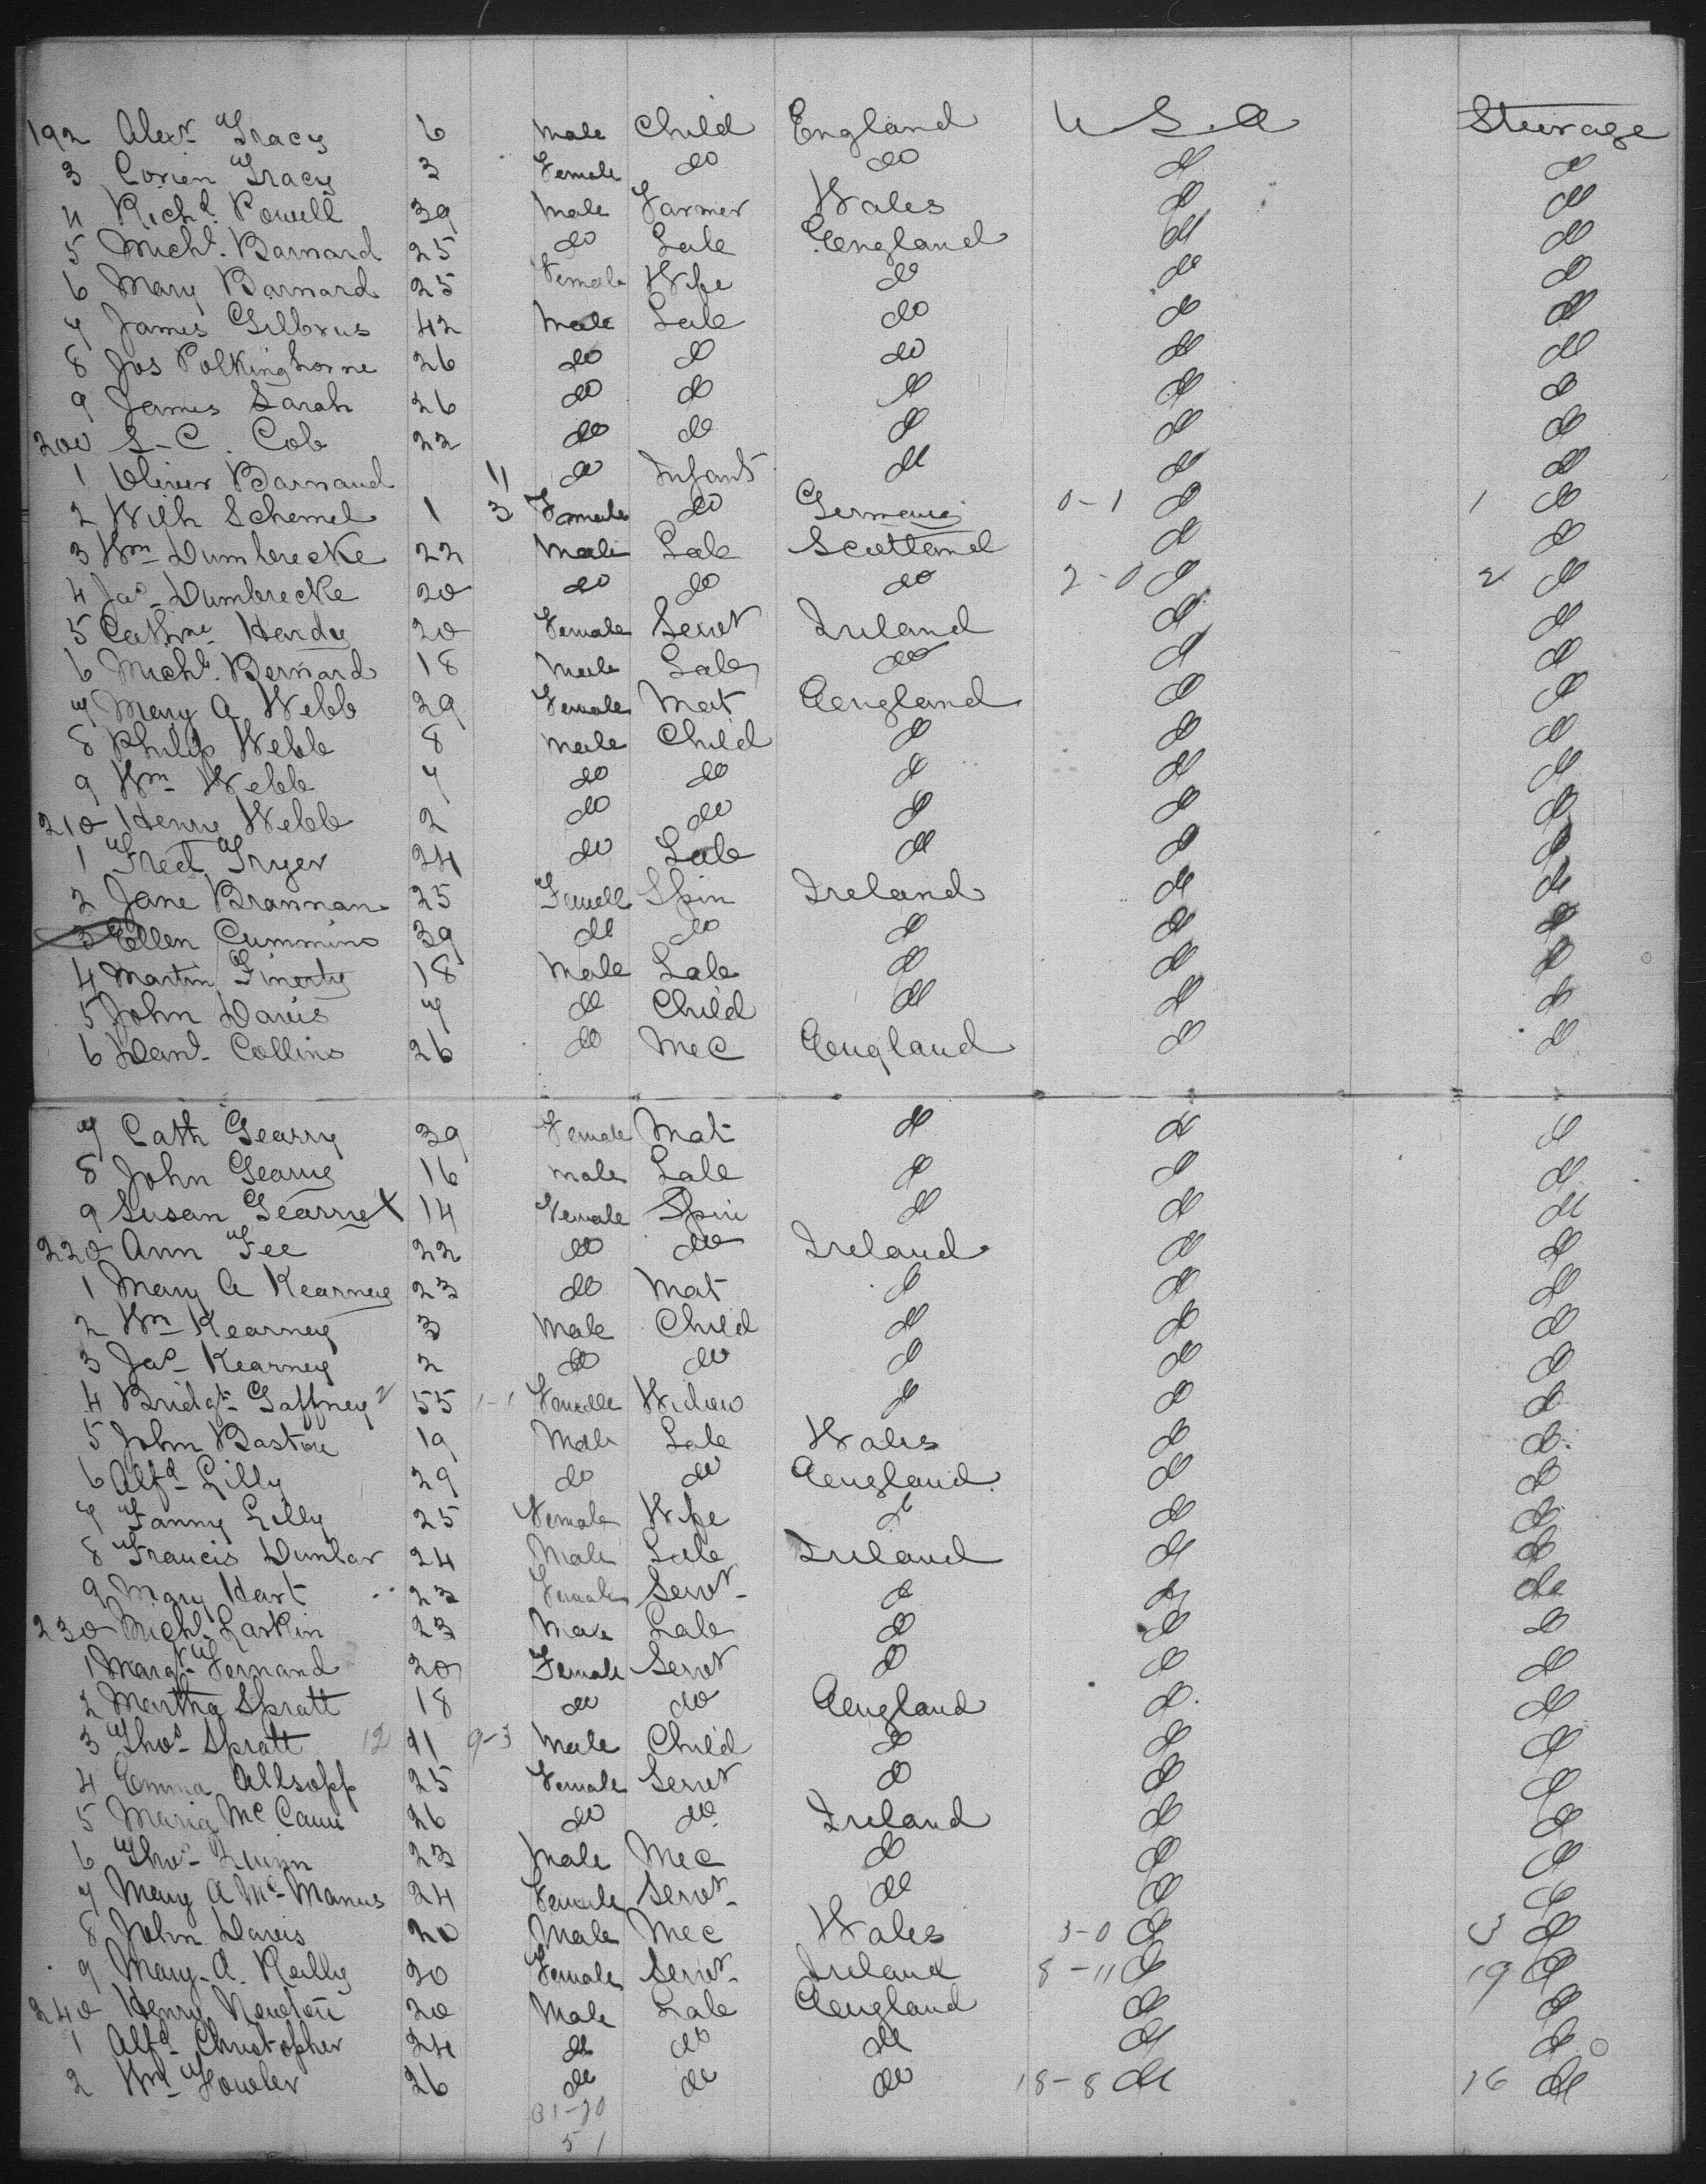 192 Alexr Tracy 6 Male Child England U.S.A Steerage
3 Corien Tracy 3 Female do do do do
4 Richd. Powell 39 Male Farmer Wales do do
5 Michl. Barnard 25 do Lab England do do
6 Mary Barnard 25 Female Wife do do do
7 James Gilbrus 42 Male Lab do do do
8 Jos Polkinghorne 26 do do do do do
9 James Sarah 26 do do do do do
200 S-C. Cob 22 do do do do do
1 Oliver Barnaud 11 do Infant do do do
2 Wilh Schemel 1 3 Female do Germany 0-1 do 1 do
3 Wm Dumbrecke 22 Male Lab Scotland do do
4 Jas Dumbrecke 20 do do do 2-0 do 2 do
5 Cathne Hardy 20 Female Servt Ireland do do
6 Michl. Bernard 18 Male Lab do do do
7 Mary A Webb 29 Female Mat England do do
8 Philip Webb 8 Male Child do do do
9 Wm Webb 7 do do do do do
210 Henry Webb 2 do do do do do
1 Fred Fryer 24 do Lab do do do
2 Jane Brannan 25 Female Spin Ireland do do
3 Ellen Cummins 39 do do do do do
4 Martin Finerty 18 Male Lab do do do
5 John Davis 7 do Child do do do
6 Danl. Collins 26 do Mec England do do
7 Cath Gearry 39 Female Mat do do do
8 John Gearry 16 Male Lab do do do
9 Susan Gearry X 14 Female Spin do do do
220 Ann Fee 22 do do Ireland do do
1 Mary A Kearney 23 do Mat do do do
2 Wm Kearney 3 Male Child do do do
3 Jas Kearney 2 do do do do do
4 Bridgt Gaffney 55 1-1 Female Widow do do do
5 John Baston 19 Male Lab Wales do do
6 Alfd Lilly 29 do do England do do
7 Fanny Lilly 25 Female Wife do do do
8 Francis Dunbar 24 Male Lab Ireland do do
9 Mary Hart 23 Female Servt do do do
230 Michl. Larkin 23 Male Lab do do do
1 Margt Fernand 20 Female Servt do do do
2 Martha Spratt 18 do do England do do
3 Thos Spratt 12 11 9-3 Male Child do do do
4 Emma Allsopp 25 Female Servt do do do
5 Maria McCann 26 do do Ireland do do
6 Thos Quinn 23 Male Mec do do do
7 Mary A McManus 24 Female Servt do do do
8 John Davis 20 Male Mec Wales 3-0 do 3 do
9 Mary A. Reilly 20 Female Servt Ireland 8-11 do 19 do
240 Henry Newton 20 Male Lab England do do
1 Alfd Christopher 24 do do do do do
2 Wm Fowler 26 do do do 18-8 do 16 do
31-20
51